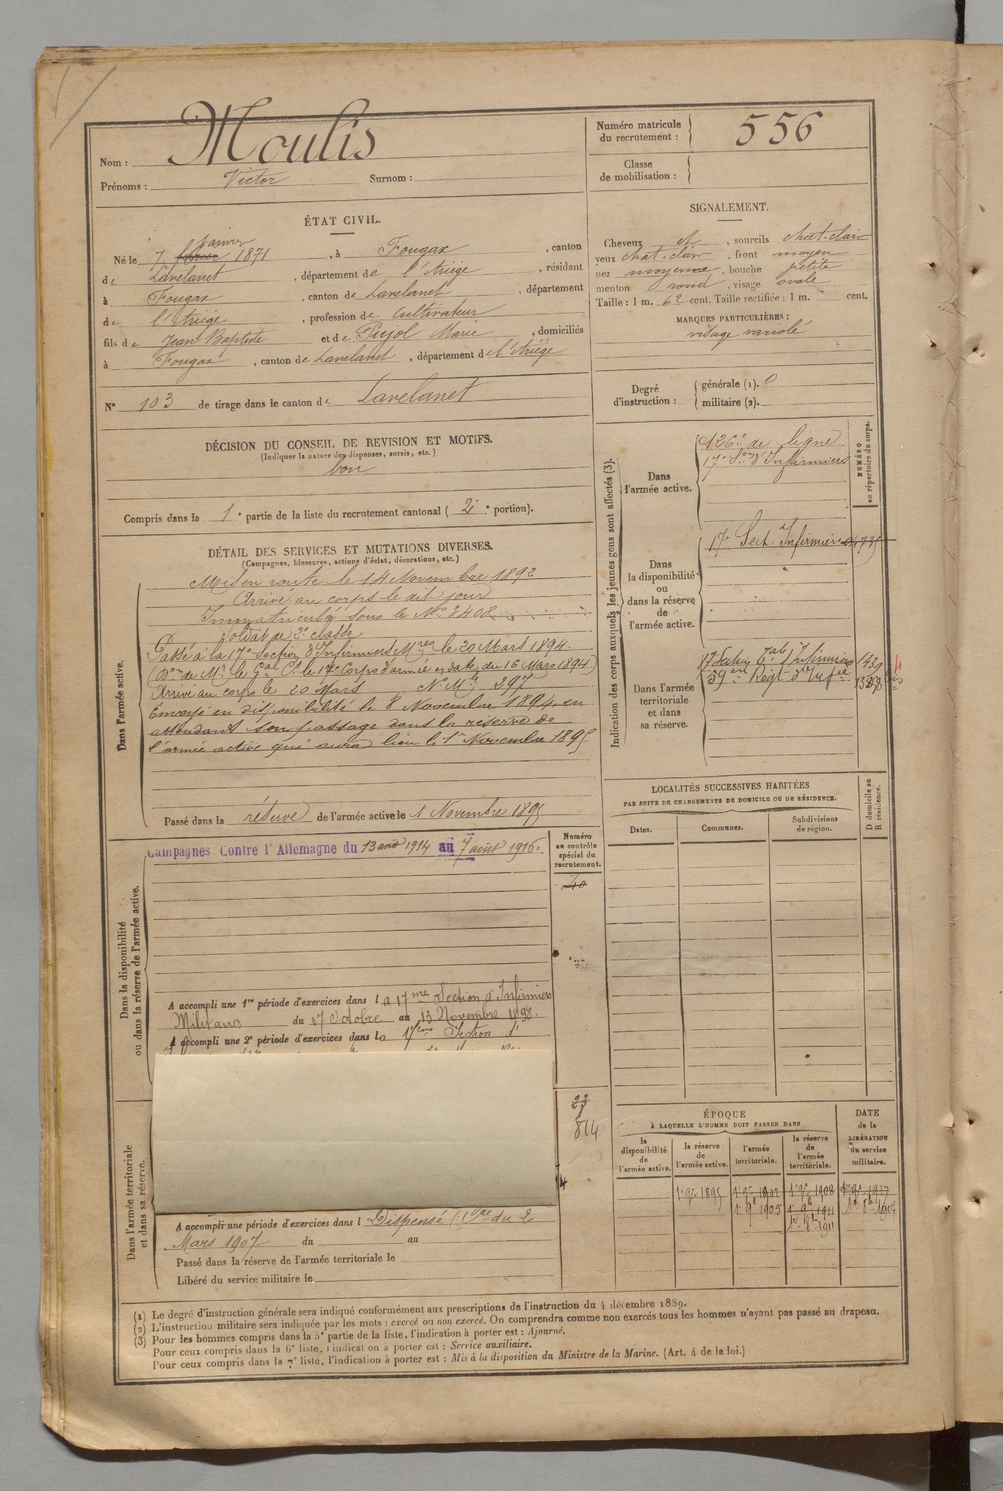 Nom : Moulis
Prénoms : Victor Surnom :
Numéro matricule du recrutement : 556
Classe de mobilisation :
ÉTAT CIVIL.
Né le 7 janvier 1871, à Fougax, canton
de Lavelanet, département de l'Ariège, résidant
à Fougax, canton de Lavelanet, département
de l'Ariège, profession de cultivateur
fils de Jean Baptiste et de Pujol Marie, domiciliés
à Fougax, canton de Lavelanet, département de l'Ariège
N° 103 de tirage dans le canton de Lavelanet
SIGNALEMENT.
Cheveux et, sourcils chat-clair
yeux chat-clair, front moyen
nez moyenne, bouche petite
menton rond, visage ovale
Taille : 1 m. 62 cent. Taille rectifiée : 1 m. cent.
MARQUES PARTICULIÈRES :
visage variolé
Degré d'instruction : générale (1). 0
militaire (2).
DÉCISION DU CONSEIL DE REVISION ET MOTIFS.
(Indiquer la nature des dispenses, sursis, etc.)
bon
Compris dans la 1e partie de la liste du recrutement cantonal (2e portion).
DÉTAIL DES SERVICES ET MUTATIONS DIVERSES.
(Campagnes, blessures, actions d'éclat, décorations, etc.)
Dans l'armée active.
Mis en route le 14 Novembre 1892
Arrivé au corps le dit jour
Immatriculé sous le N° 3402
Soldat de 2e classe
Passé à la 17e Section d'Infirmiers Mres le 20 Mars 1894.
(Don de Mr le Gal Ct le 17e Corps d'armée en date du 16 Mars 1894)
Arrivé au corps le 20 Mars N° Mle 297
Envoyé en disponibilité le 8 Novembre 1894, en
attendant son passage dans la réserve de
l'armée active qui aura lieu le 1er Novembre 1895
Passé dans la réserve de l'armée active le 1 Novembre 1895
Indication des corps auxquels les jeunes gens sont affectés (3).
NUMÉRO au répertoire du corps.
Dans l'armée active.
126e de ligne
17e Son d'Infirmiers
Dans la disponibilité ou dans la réserve de l'armée active.
17e Sect. Infirmiers
Dans l'armée territoriale et dans sa réserve.
17 Section Tale d'Infirmiers
Dans la disponibilité ou dans la réserve de l'armée active.
Campagnes Contre l'Allemagne du 13 août 1914 au 7 août 1916.
Numéro au contrôle spécial du recrutement.
40
A accompli une 1re période d'exercices dans la 17me Section d'Infirmiers
Militaires du 17 Octobre au 13 Novembre 1898.
A accompli une 2e période d'exercices dans la 17ème Section d'
Dans l'armée territoriale et dans sa réserve.
23
814
A accompli une période d'exercices dans l Dispensé (Cire du 2
Mars 1907 du au
Passé dans la réserve de l'armée territoriale le
Libéré du service militaire le
LOCALITÉS SUCCESSIVES HABITÉES
PAR SUITE DE CHANGEMENTS DE DOMICILE OU DE RÉSIDENCE.
Dates. Communes. Subdivisions de région. D domicile ou R résidence.
ÉPOQUE
À LAQUELLE L'HOMME DOIT PASSER DANS
la disponibilité de l'armée active. la réserve de l'armée active. l'armée territoriale. la réserve de l'armée territoriale.
DATE de la LIBÉRATION du service militaire.
1er 9bre 1895 1er 9bre 1902 1er 9bre 1908 1er 9bre 1917
(1) Le degré d'instruction générale sera indiqué conformément aux prescriptions de l'instruction du 4 décembre 1889.
(2) L'instruction militaire sera indiquée par les mots : exercé ou non exercé. On comprendra comme non exercés tous les hommes n'ayant pas passé au drapeau.
(3) Pour les hommes compris dans la 5e partie de la liste, l'indication à porter est : Ajourné.
Pour ceux compris dans la 6e liste, l'indication à porter est : Service auxiliaire.
Pour ceux compris dans la 7e liste, l'indication à porter est : Mis à la disposition du Ministre de la Marine. (Art. 4 de la loi.)